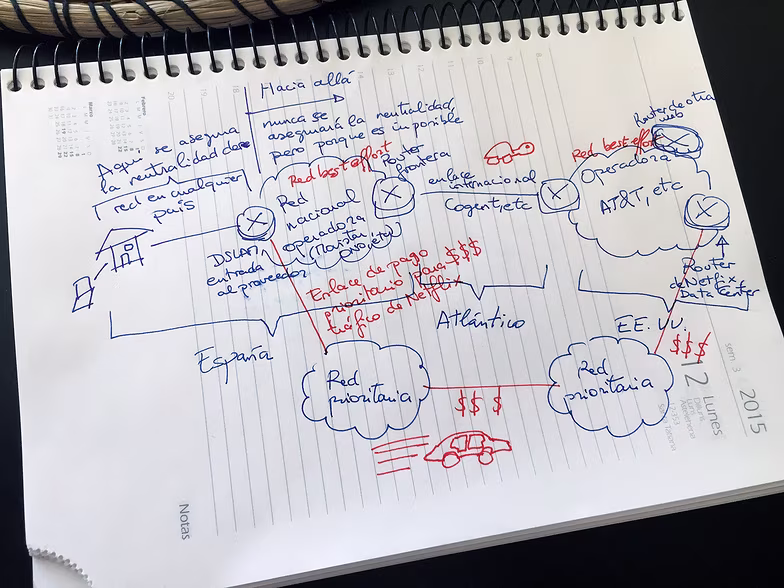 Hacia allá
nunca se
asegurará la neutralidad,
pero porque es imposible
Aquí se asegura
la neutralidad de
red en cualquier
país
Red best effort
Red
nacional
operadora
(Movistar,
Router
frontera
enlace
internacional
Cogent, etc
Router de otra
web
Red best effort
Operadora
AT&T, etc
DSLAM,
entrada
al proveedor
Enlace de pago
prioritario para $$$
tráfico de Netflix
Router
de Netflix
Data Center
España
Atlántico
EE. UU.
$$$
Red
prioritaria
$$ $
Red
prioritaria
Notas
sem 3
12 Lunes
2015
Febrero
Marzo
20
19
18